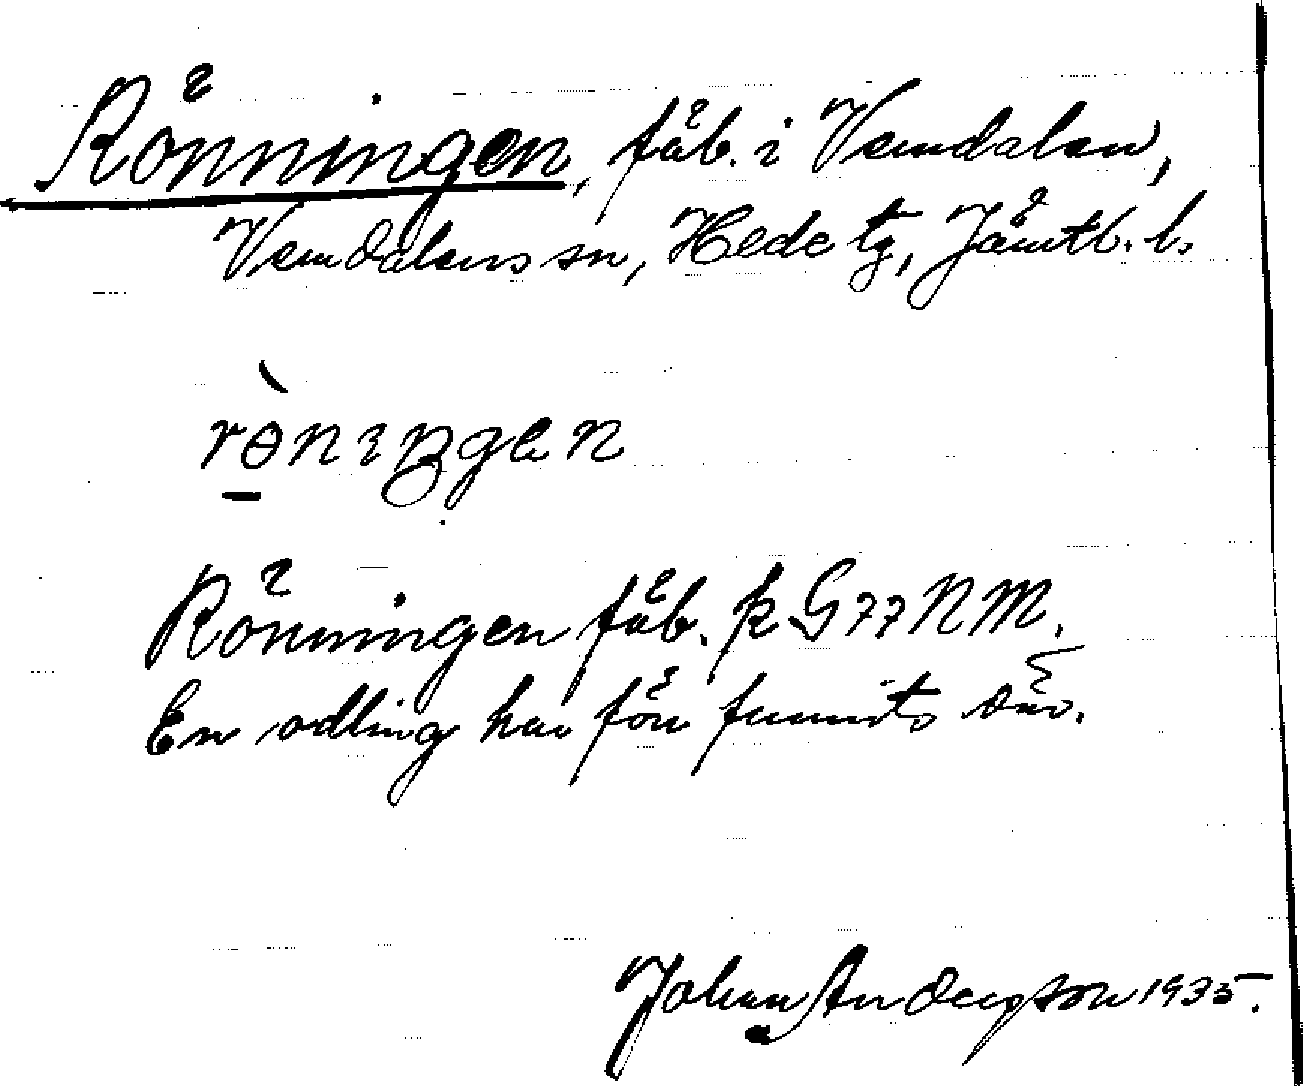 Rönningen, fäb. i Vemdalen,
Vemdalens sn, Hede tg, Jämtl. l.
rɵ̀niŋgen
Rönningen fäb. k G77NM.
En odling har förr funnits där.
Johan Anderson 1935.